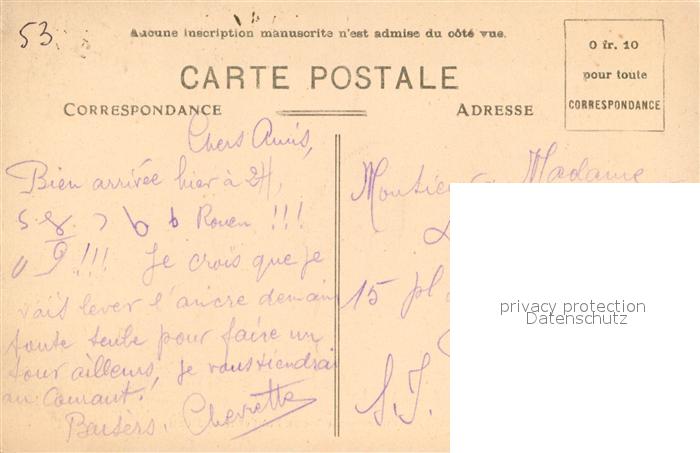 53.
Aucune inscription manuscrite n'est admise du côté vue.
CARTE POSTALE
0 fr. 10
pour toute
CORRESPONDANCE
CORRESPONDANCE
ADRESSE
Chers Amis,
Bien arrivée hier à 2H,
Rouen !!!
!!! Je crois que je
vais lever l'ancre demain
toute seule pour faire un
tour ailleurs, je vous tiendrai
au Courant!
Baisers. Chevrette
Madame
15 pl
privacy protection
Datenschutz